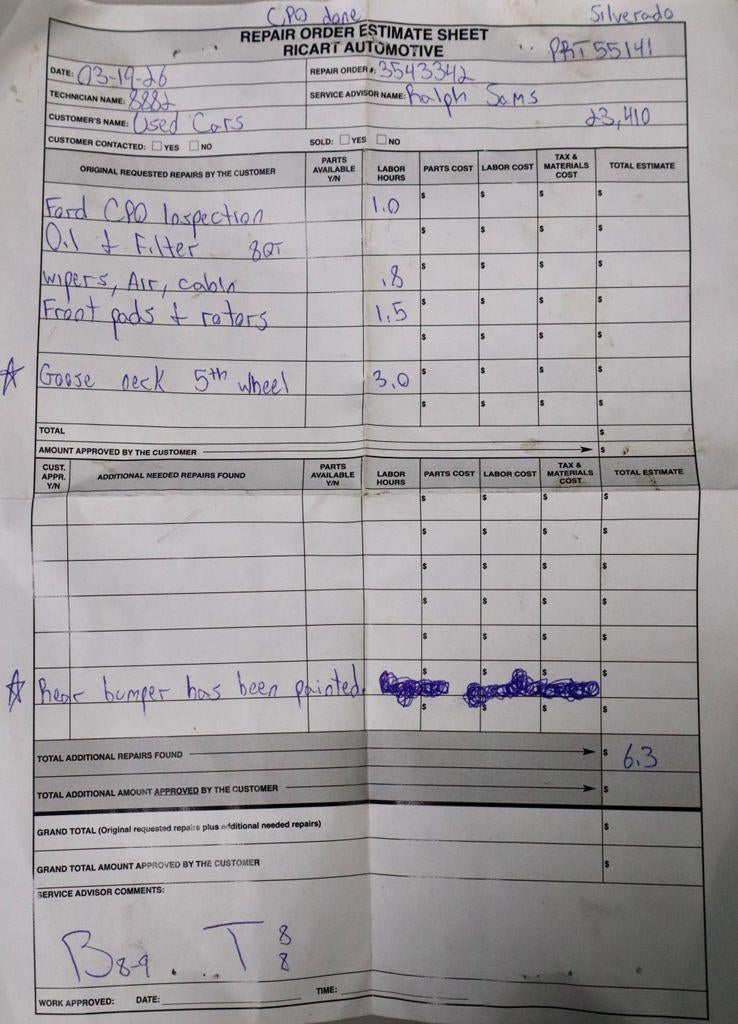 CPO done
Silverado
REPAIR ORDER ESTIMATE SHEET
RICART AUTOMOTIVE
PRT 55141
DATE: 03-19-26
REPAIR ORDER #: 3543342
TECHNICIAN NAME: 8882
SERVICE ADVISOR NAME: Ralph Sams
CUSTOMER'S NAME: Used Cars
23,410
CUSTOMER CONTACTED: ☐ YES ☐ NO SOLD: ☐ YES ☐ NO
ORIGINAL REQUESTED REPAIRS BY THE CUSTOMER PARTS AVAILABLE Y/N LABOR HOURS PARTS COST LABOR COST TAX & MATERIALS COST TOTAL ESTIMATE
Ford CPO Inspection 1.0 $ $ $ $
Oil & Filter 8QT $ $ $ $
wipers, Air, cabin .8 $ $ $ $
Front pads & rotors 1.5 $ $ $ $
$ $ $ $
☆ Goose neck 5th wheel 3.0 $ $ $ $
$ $ $ $
TOTAL $
AMOUNT APPROVED BY THE CUSTOMER $
CUST. APPR. Y/N ADDITIONAL NEEDED REPAIRS FOUND PARTS AVAILABLE Y/N LABOR HOURS PARTS COST LABOR COST TAX & MATERIALS COST TOTAL ESTIMATE
$ $ $ $
$ $ $ $
$ $ $ $
$ $ $ $
$ $ $ $
☆ Rear bumper has been painted. $ $ $ $
$ $ $ $
TOTAL ADDITIONAL REPAIRS FOUND $ 6.3
TOTAL ADDITIONAL AMOUNT APPROVED BY THE CUSTOMER $
GRAND TOTAL (Original requested repairs plus additional needed repairs) $
GRAND TOTAL AMOUNT APPROVED BY THE CUSTOMER $
SERVICE ADVISOR COMMENTS:
B 8-9 . T 8
8
WORK APPROVED: DATE: TIME: